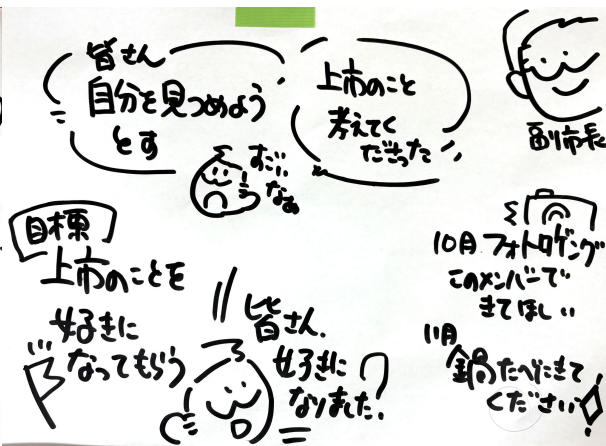 皆さん
自分を見つめよう
とす
すごい
なぁ
上市のこと
考えてく
ださった
副市長
目標
上市のことを
好きに
なってもらう
皆さん、
好きに
なりました?
10月 フォトロゲイング
このメンバーで
きてほしい
11月
鍋たべにきて
ください!